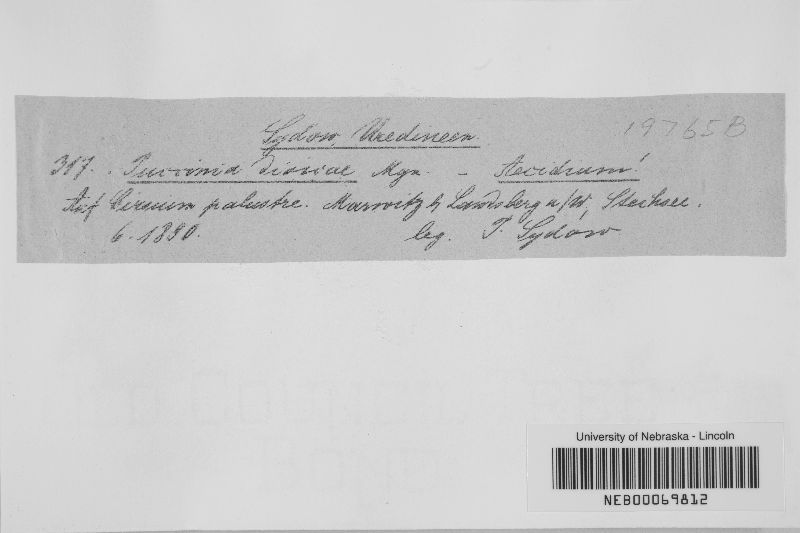 Sydow, Uredineen.
19765B
317. Puccinia dioicae Mgn. – Aecidium!
Auf Cirsium palustre. Marwitz b Landsberg a/W, Stechsee.
6. 1890.
leg. P. Sydow
University of Nebraska - Lincoln
NEB00069812